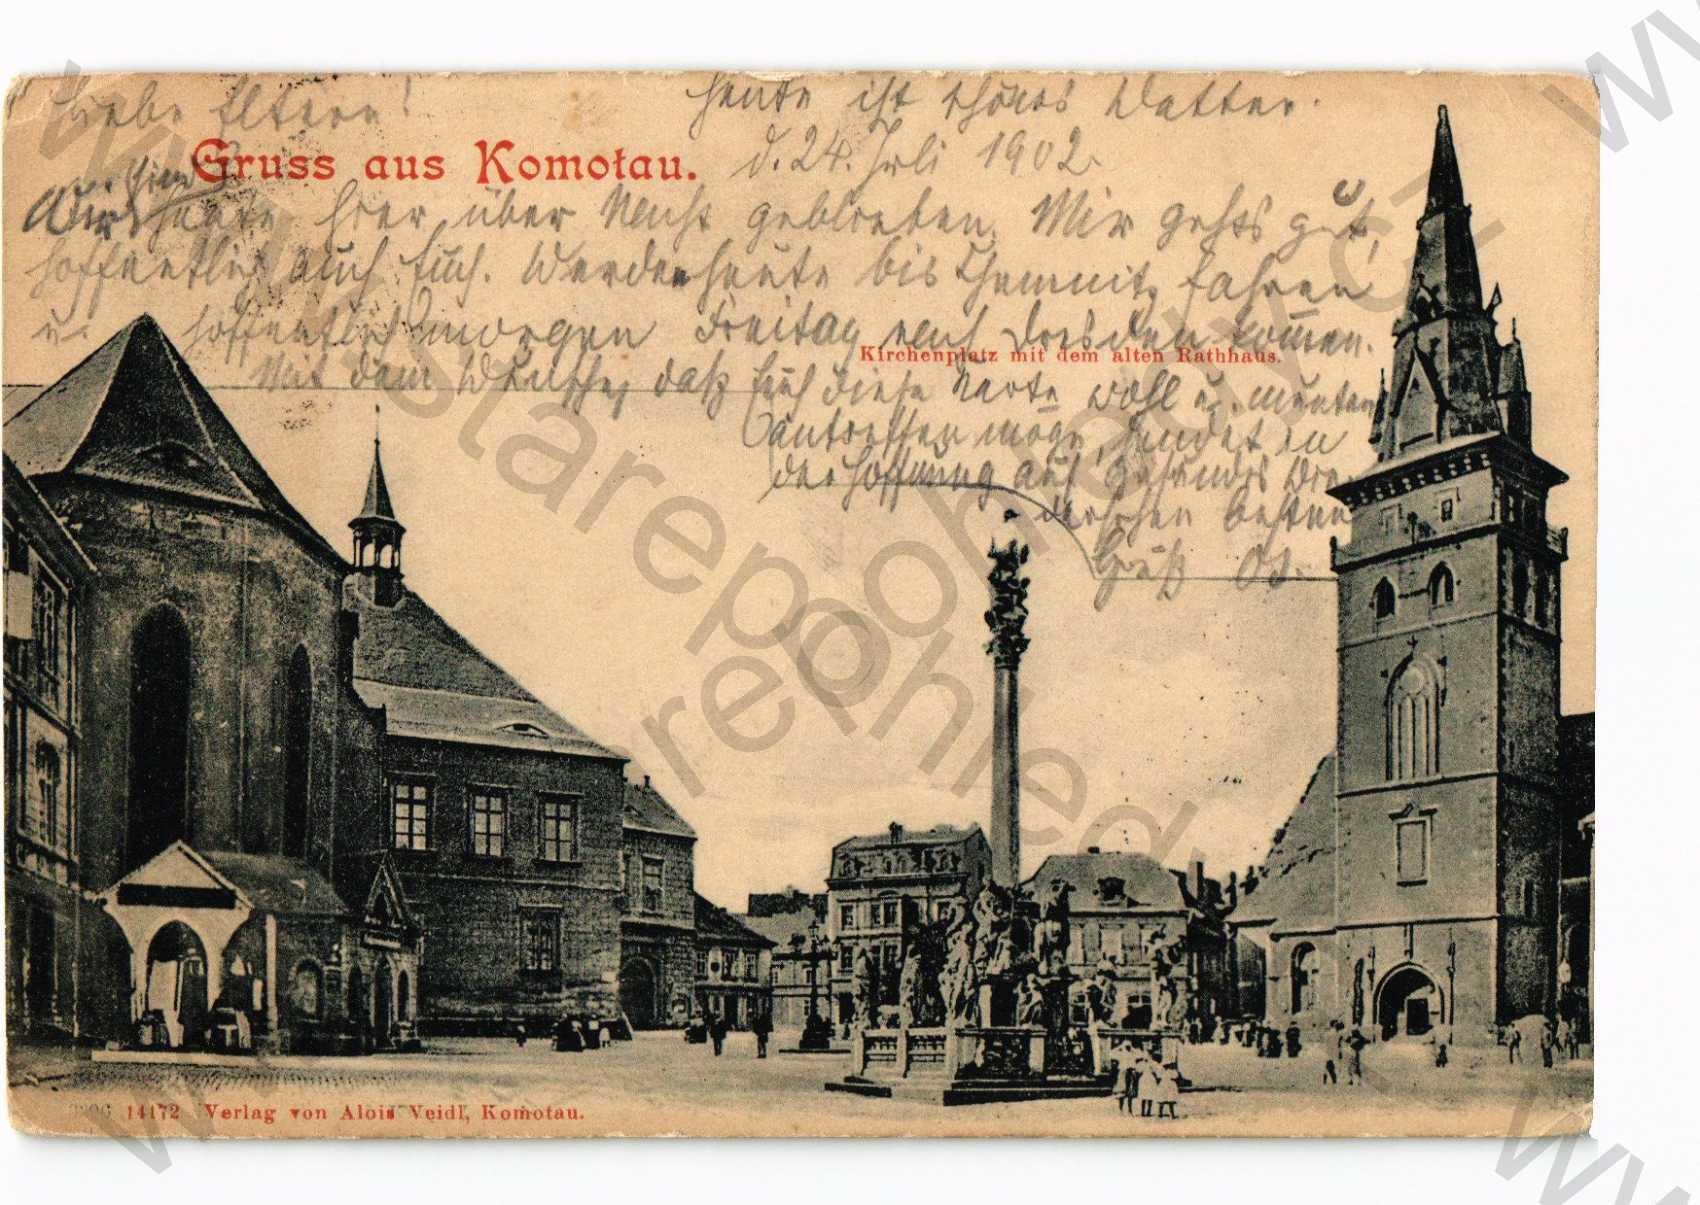 Liebe Eltern!
heute ist schönes Wetter.
Gruss aus Komotau.
d. 24. Juli 1902
Wir sind heute hier über Nacht geblieben. Mir gehts gut,
hoffentlich auch Euch. Werden heute bis Chemnitz fahren
u. hoffentlich morgen Freitag nach Dresden kommen.
Kirchenplatz mit dem alten Rathhaus.
Mit dem Wunsche, daß Euch diese Karte wohl u. munter
antreffen möge, sendet in
der Hoffnung auf gesundes Wie-
dersehen besten
Gruß
14172 Verlag von Alois Veidl, Komotau.
www.starepohledy.cz